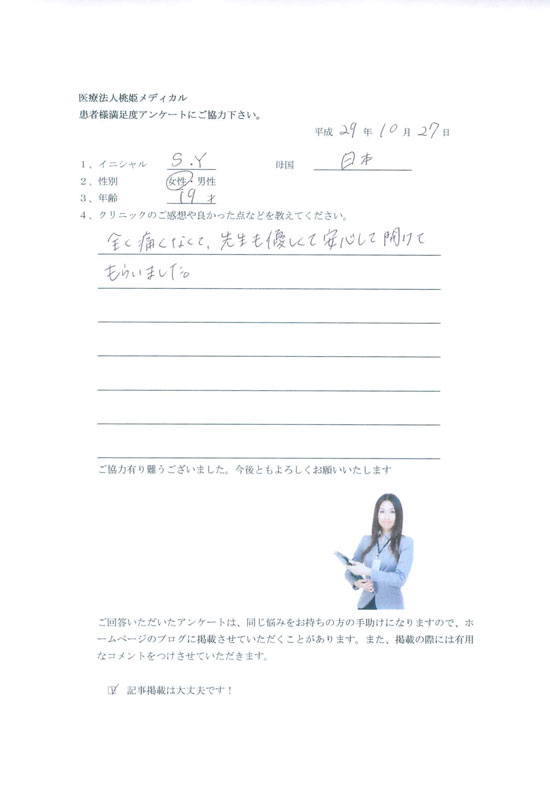 医療法人桃姫メディカル
患者様満足度アンケートにご協力下さい。
平成 29 年 10 月 27 日
1、イニシャル S.Y 母国 日本
2、性別 女性・男性
3、年齢 19 才
4、クリニックのご感想や良かった点などを教えてください。
全く痛くなくて、先生も優しくて安心して開けて
もらいました。
ご協力有り難うございました。今後ともよろしくお願いいたします
ご回答いただいたアンケートは、同じ悩みをお持ちの方の手助けになりますので、ホ
ームページのブログに掲載させていただくことがあります。また、掲載の際には有用
なコメントをつけさせていただきます。
☑ 記事掲載は大丈夫です！